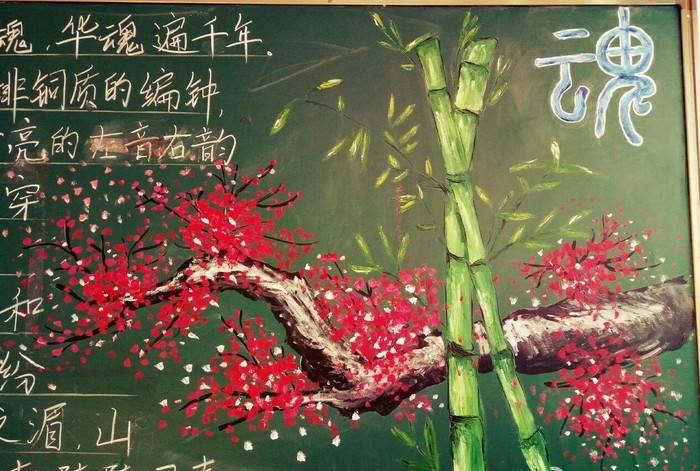 魂,华魂遍千年.
非铜质的编钟,
亮的左音右韵
穿
和
纷
湄,山
魂